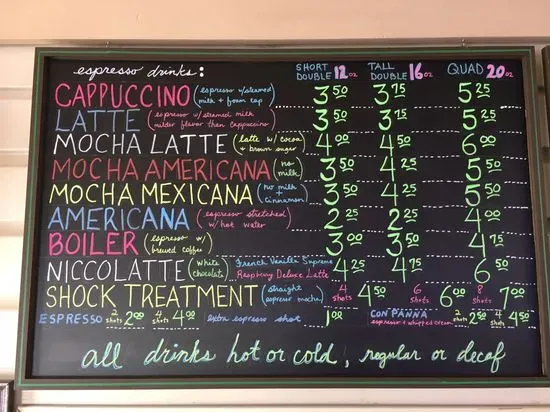 espresso drinks: SHORT DOUBLE 12 oz TALL DOUBLE 16 oz QUAD 20 oz
CAPPUCCINO (espresso w/steamed milk + foam cap) 3 50 3 75 5 25
LATTE (espresso w/ steamed milk milder flavor than cappuccino) 3 50 3 75 5 25
MOCHA LATTE (latte w/ cocoa + brown sugar) 4 00 4 50 6 00
MOCHA AMERICANA (no milk) 3 50 4 25 5 50
MOCHA MEXICANA (no milk + cinnamon) 3 50 4 25 5 50
AMERICANA (espresso stretched w/ hot water) 2 25 2 25 4 00
BOILER (espresso w/ brewed coffee) 3 00 3 50 4 75
NICCOLATTE (white chocolate) French Vanilla Supreme Raspberry Deluxe Latte 4 25 4 75 6 50
SHOCK TREATMENT (straight espresso mocha) 4 shots 4 50 6 shots 6 00 8 shots 7 00
ESPRESSO 2 shots 2 00 4 shots 4 00 extra espresso shot 1 00 CON PANNA espresso + whipped cream 2 shots 2 50 4 shots 4 50
all drinks hot or cold, regular or decaf